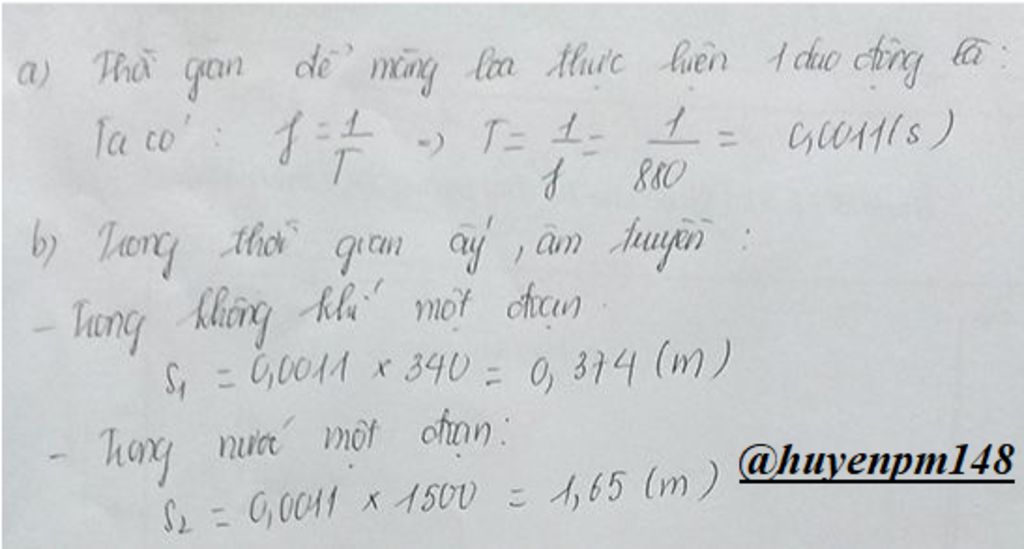 a) Thời gian để màng loa thực hiện 1 dao động là:
Ta có: f = 1/T => T = 1/f = 1/880 = 0,0011(s)
b) Trong thời gian ấy, âm truyền:
- Trong không khí một đoạn
S₁ = 0,0011 × 340 = 0,374 (m)
- Trong nước một đoạn:
S₂ = 0,0011 × 1500 = 1,65 (m)
@huyenpm148